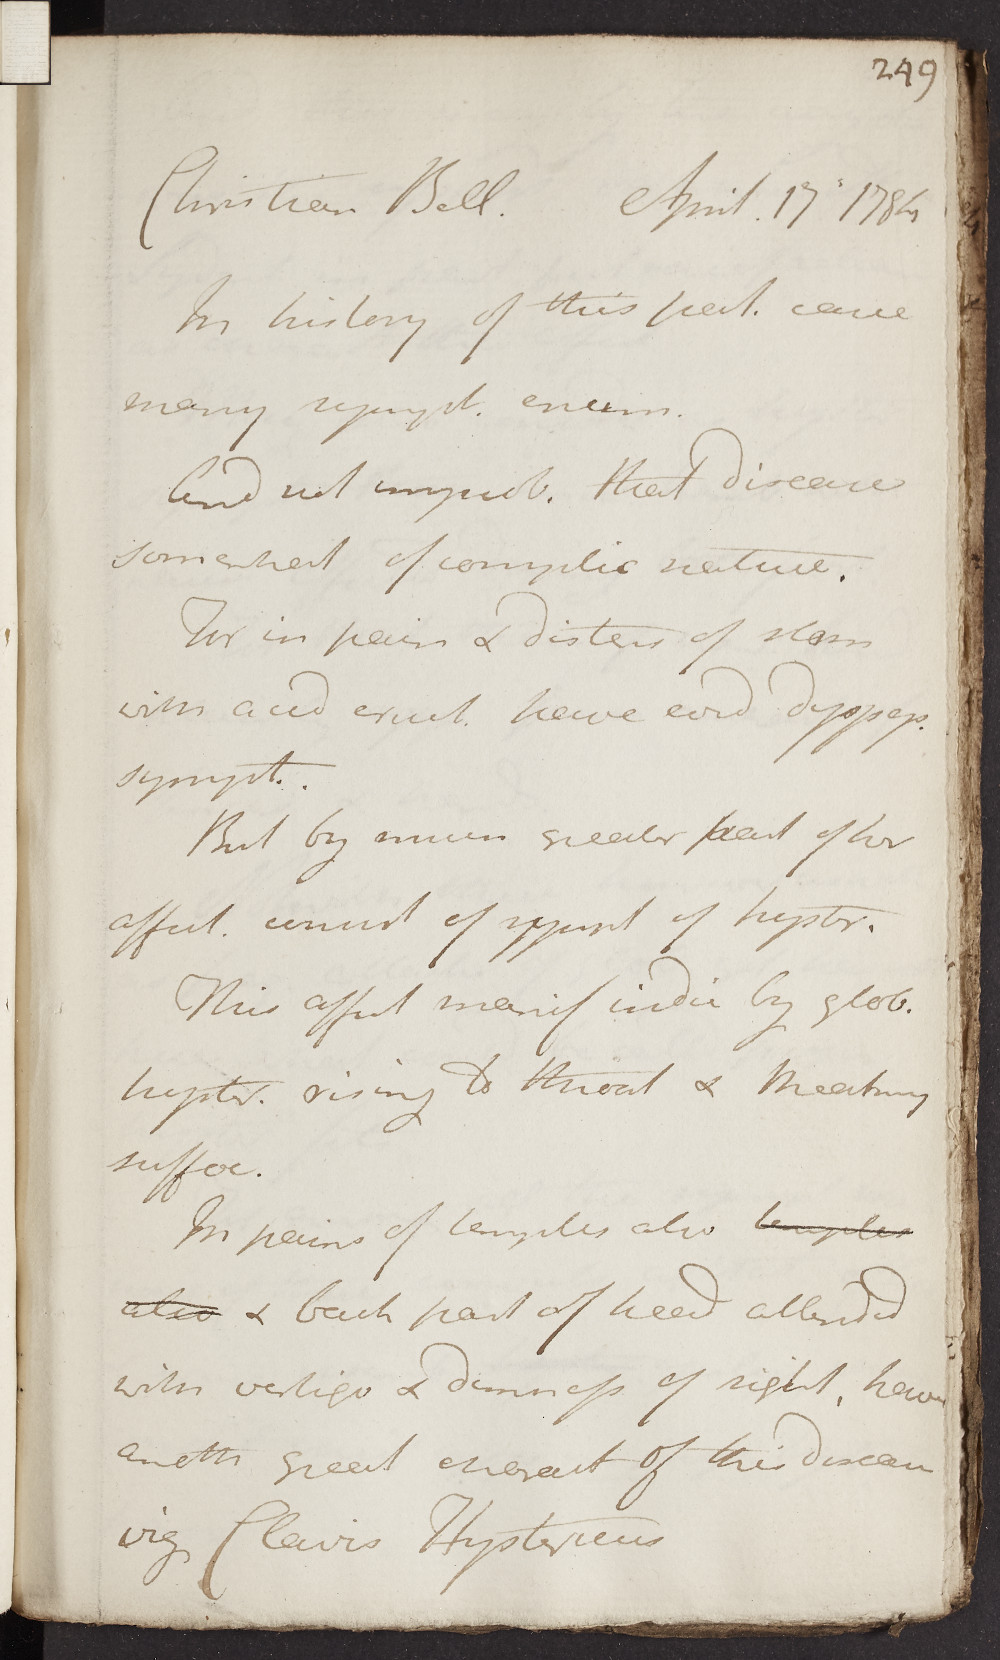 249
Christian Bell. April. 17. 1784
In history of this pat. came
many sympt. enum.
And not improb. that disease
somewhat of complic nature.
For in pain & disten of stom
with acid eruct. have evid dyspep.
sympt.
But by much greater part of her
affect. consist of sympt of hyster.
This affect manif indic by glob.
hyster. rising to throat & threatning
suffoc.
In pains of temples also temples
also & back part of head attended
with vertigo & dimness of sight, have
anoth great charact of this disease
viz Clavis Hystericus